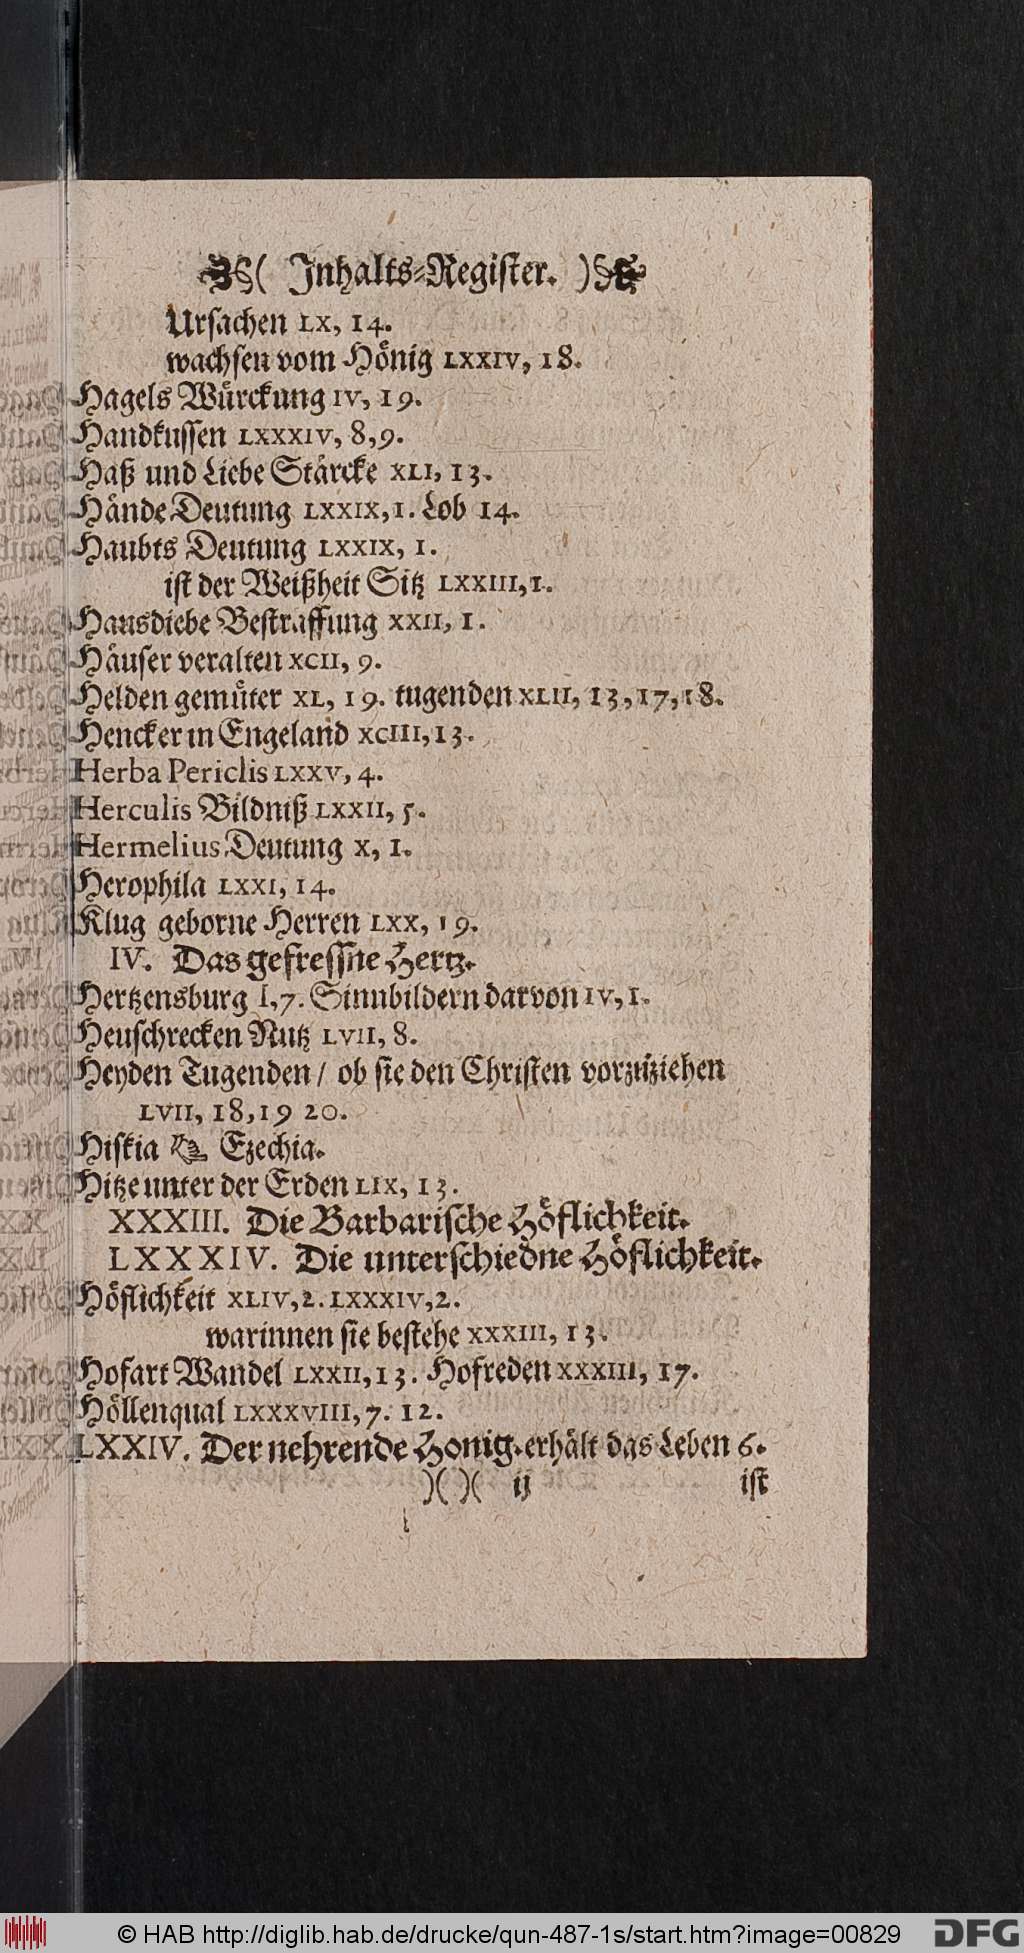 ( Jnhalts-Register. )
Urſachen LX, 14.
wachſen vom Hoͤnig LXXIV, 18.
Hagels Wuͤrckung IV, 19.
Handkuſſen LXXXIV, 8,9.
Haß und Liebe Staͤrcke XLI, 13.
Haͤnde Deutung LXXIX, 1. Lob 14.
Haubts Deutung LXXIX, 1.
iſt der Weißheit Sitz LXXIII, 1.
Hausdiebe Beſtraffung XXII, 1.
Haͤuſer veralten XCII, 9.
Helden gemuͤter XL, 19. tugenden XLII, 13, 17, 18.
Hencker in Engeland XCIII, 13.
Herba Periclis LXXV, 4.
Herculis Bildniß LXXII, 5.
Hermelius Deutung X, 1.
Herophila LXXI, 14.
Klug geborne Herren LXX, 19.
IV. Das gefreſſne Hertz.
Hertzensburg I, 7. Sinnbildern darvon IV, 1.
Heuſchrecken Nutz LVII, 8.
Heyden Tugenden / ob ſie den Chriſten vorzuziehen
LVII, 18, 19 20.
Hiſkia ☞ Ezechia.
Hitze unter der Erden LIX, 13.
XXXIII. Die Barbariſche Hoͤflichkeit.
LXXXIV. Die unterſchiedne Hoͤflichkeit.
Hoͤflichkeit XLIV, 2. LXXXIV, 2.
warinnen ſie beſtehe XXXIII, 13.
Hofart Wandel LXXII, 13. Hofreden XXXIII, 17.
Hoͤllenqual LXXXVIII, 7. 12.
LXXIV. Der nehrende Honig. erhaͤlt das Leben 6.
)( )( ij iſt
© HAB http://diglib.hab.de/drucke/qun-487-1s/start.htm?image=00829 DFG